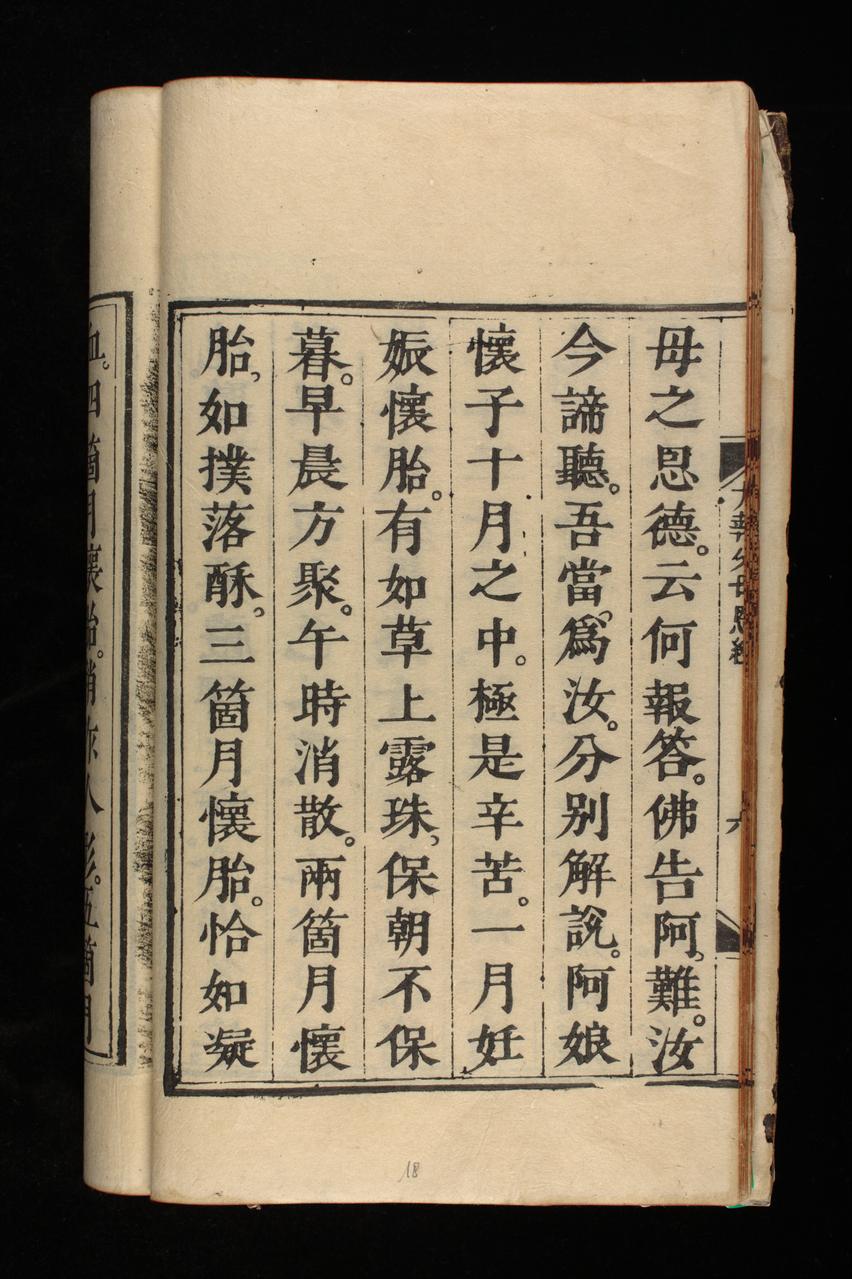 報父母恩經
六
母之恩德。云何報答。佛告阿難。汝
今諦聽。吾當爲汝。分别解說。阿娘
懷子十月之中。極是辛苦。一月妊
娠懷胎。有如草上露珠、保朝不保
暮。早晨方聚。午時消散。兩箇月懷
胎、如撲落酥、三箇月懷胎。恰如凝
血。四箇月懷胎。稍作人形。五箇月
18